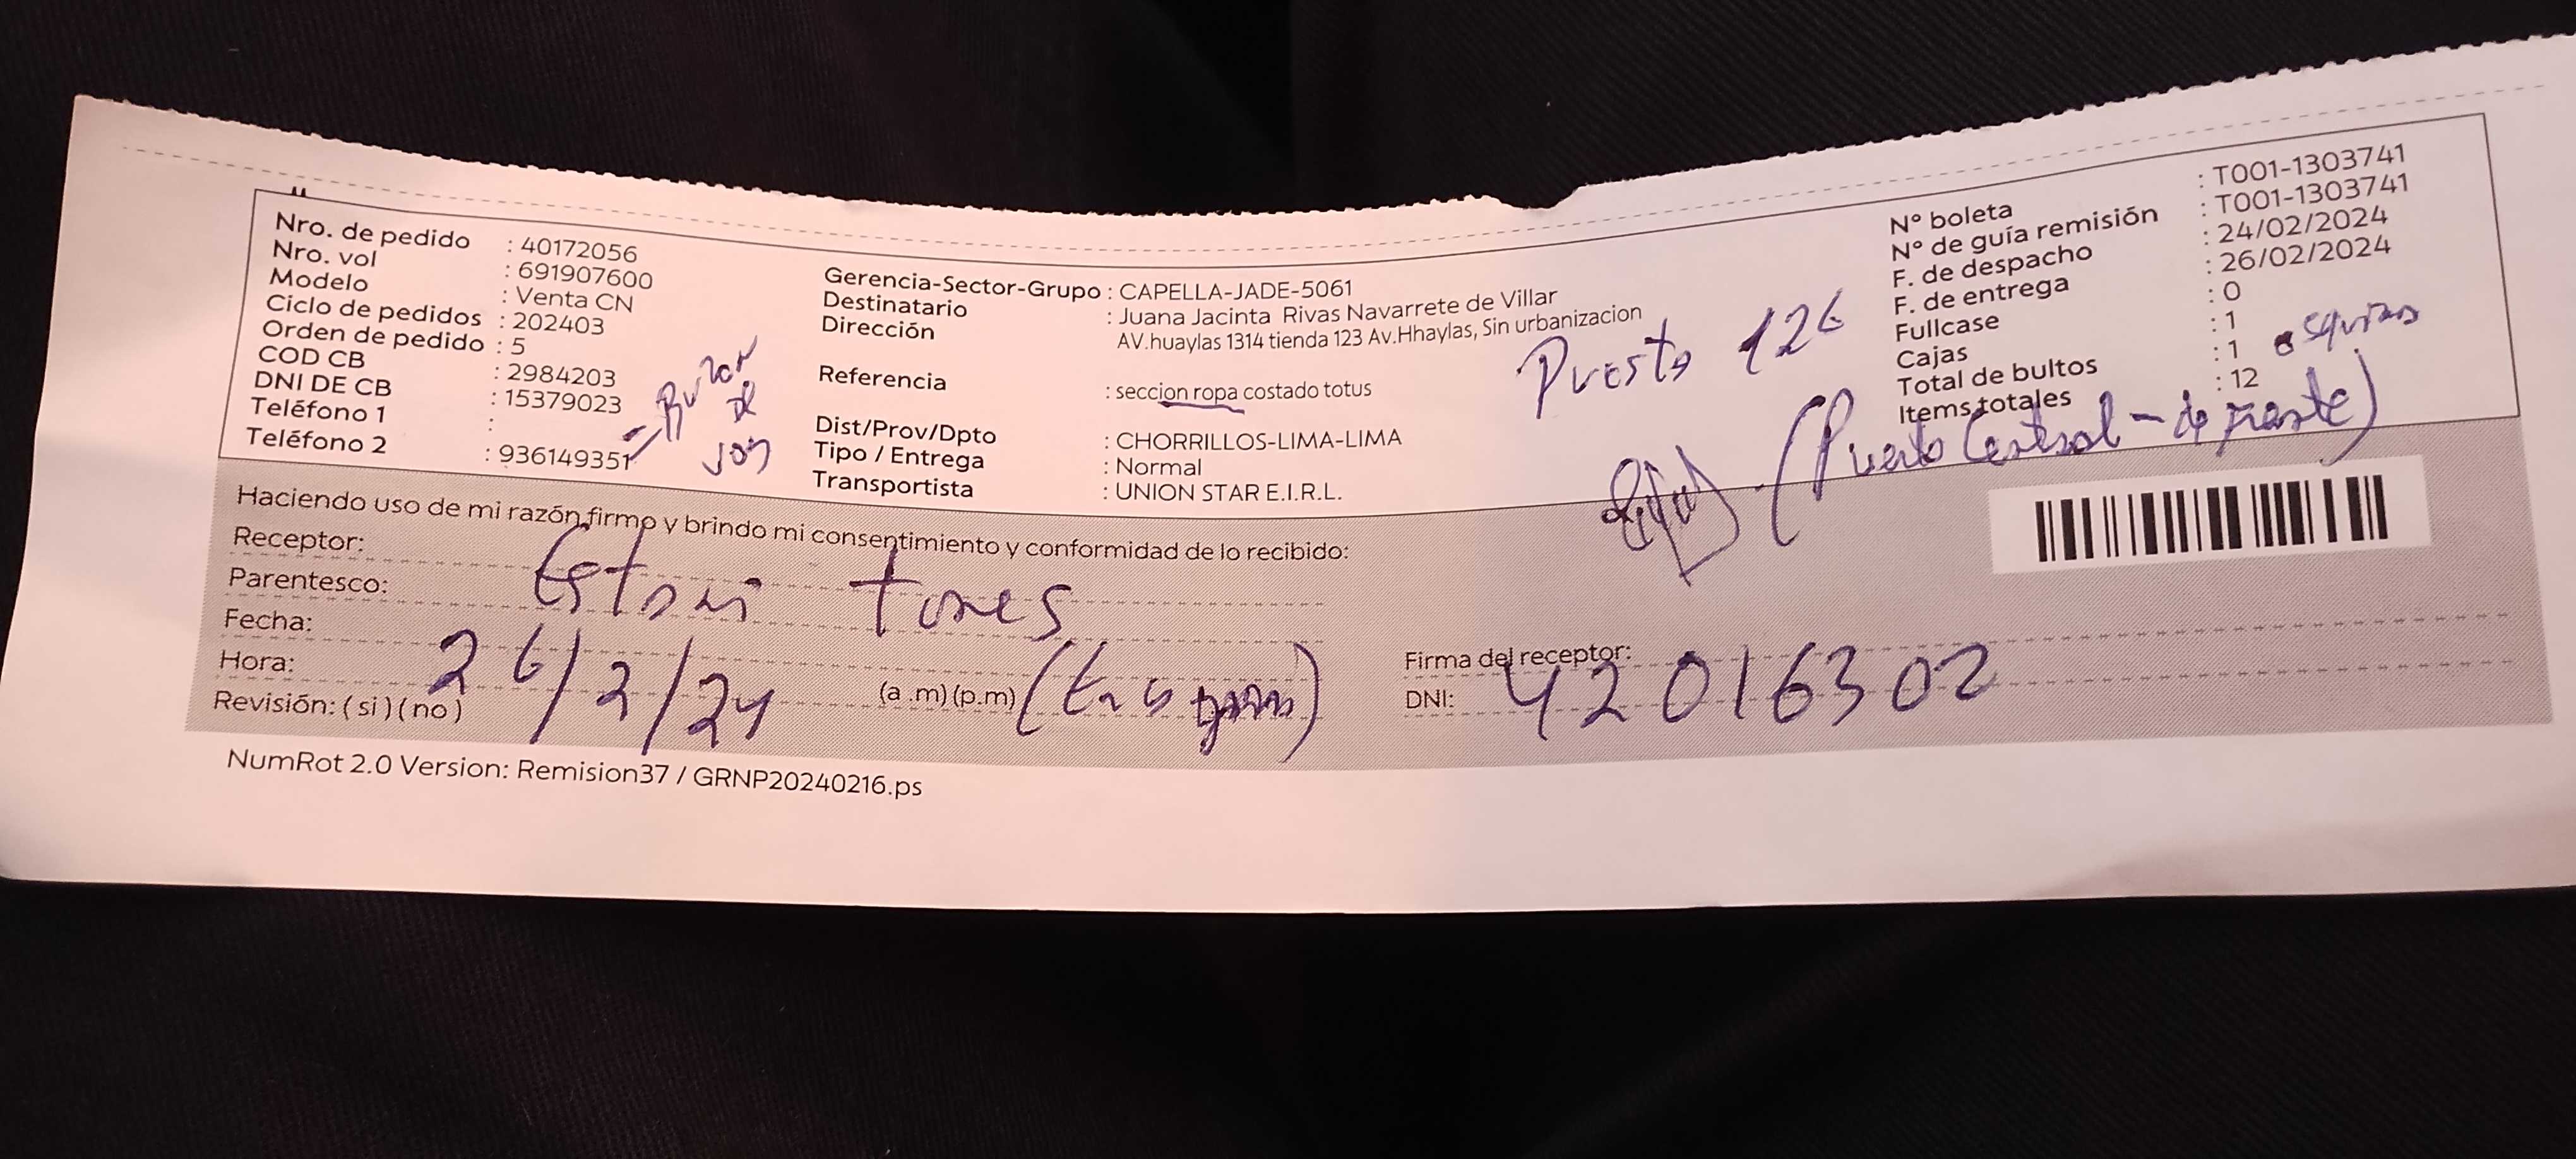 Nro. de pedido : 40172056
Nro. vol : 691907600
Modelo : Venta CN
Ciclo de pedidos : 202403
Orden de pedido : 5
COD CB : 2984203
DNI DE CB : 15379023
Teléfono 1 :
Teléfono 2 : 936149351
Buzon
de
voz
Gerencia-Sector-Grupo : CAPELLA-JADE-5061
Destinatario : Juana Jacinta Rivas Navarrete de Villar
Dirección : AV.huaylas 1314 tienda 123 Av.Hhaylas, Sin urbanizacion
Referencia : seccion ropa costado totus
Dist/Prov/Dpto : CHORRILLOS-LIMA-LIMA
Tipo / Entrega : Normal
Transportista : UNION STAR E.I.R.L.
Puesto 126
N° boleta : T001-1303741
N° de guía remisión : T001-1303741
F. de despacho : 24/02/2024
F. de entrega : 26/02/2024
Fullcase : 0
Cajas : 1
Total de bultos : 1
Items totales : 12
(Puerto Central - de frente)
Haciendo uso de mi razón firmo y brindo mi consentimiento y conformidad de lo recibido:
Receptor:
Parentesco: torres
Fecha:
Hora: 26/2/24 (a .m) (p.m)
Revisión: ( si ) ( no )
Firma del receptor:
DNI: 42016302
NumRot 2.0 Version: Remision37 / GRNP20240216.ps